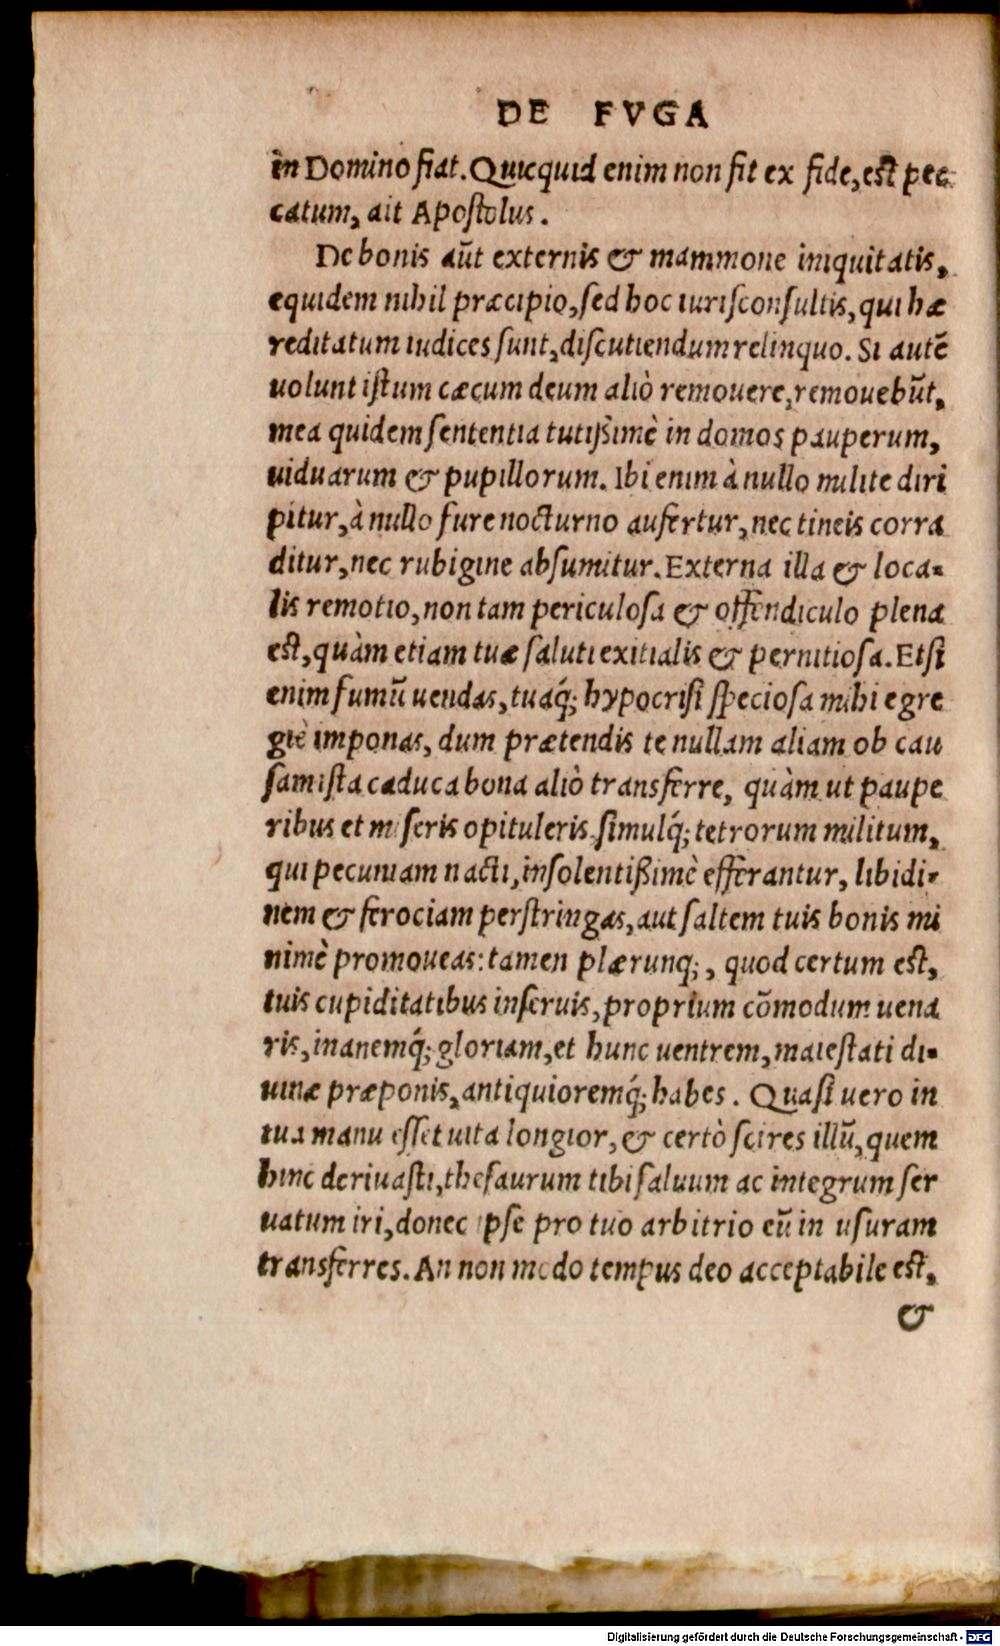 DE FVGA
in Domino fiat. Quicquid enim non fit ex fide, est pec-
catum, ait Apostolus.
De bonis aūt externis & mammone iniquitatis,
equidem nihil præcipio, sed hoc iurisconsultis, qui hæ
reditatum iudices sunt, discutiendum relinquo. Si autē
uolunt istum cæcum deum aliò remouere, remouebūt,
mea quidem sententia tutißimè in domos pauperum,
uiduarum & pupillorum. Ibi enim à nullo milite diri
pitur, à nullo fure nocturno aufertur, nec tineis corra
ditur, nec rubigine absumitur. Externa illa & loca-
lis remotio, non tam periculosa & offendiculo plena
est, quàm etiam tuæ saluti exitialis & pernitiosa. Etsi
enim fumū uendas, tuáq; hypocrisi speciosa mihi egre
giè imponas, dum prætendis te nullam aliam ob cau
sam ista caduca bona aliò transferre, quàm ut paupe
ribus et miseris opituleris simulq́; tetrorum militum,
qui pecuniam nacti, insolentißimè efferantur, libidi-
nem & ferociam perstringas, aut saltem tuis bonis mi
nimè promoueas: tamen plærunq;, quod certum est,
tuis cupiditatibus inseruis, proprium cōmodum uena
ris, inanemq́; gloriam, et hunc uentrem, maiestati di-
uinæ præponis, antiquioremq́; habes. Quasi uero in
tua manu esset uita longior, & certò scires illū, quem
hinc deriuasti, thesaurum tibi saluum ac integrum ser
uatum iri, donec ipse pro tuo arbitrio eū in usuram
transferres. An non modo tempus deo acceptabile est,
&
Digitalisierung gefördert durch die Deutsche Forschungsgemeinschaft - DFG